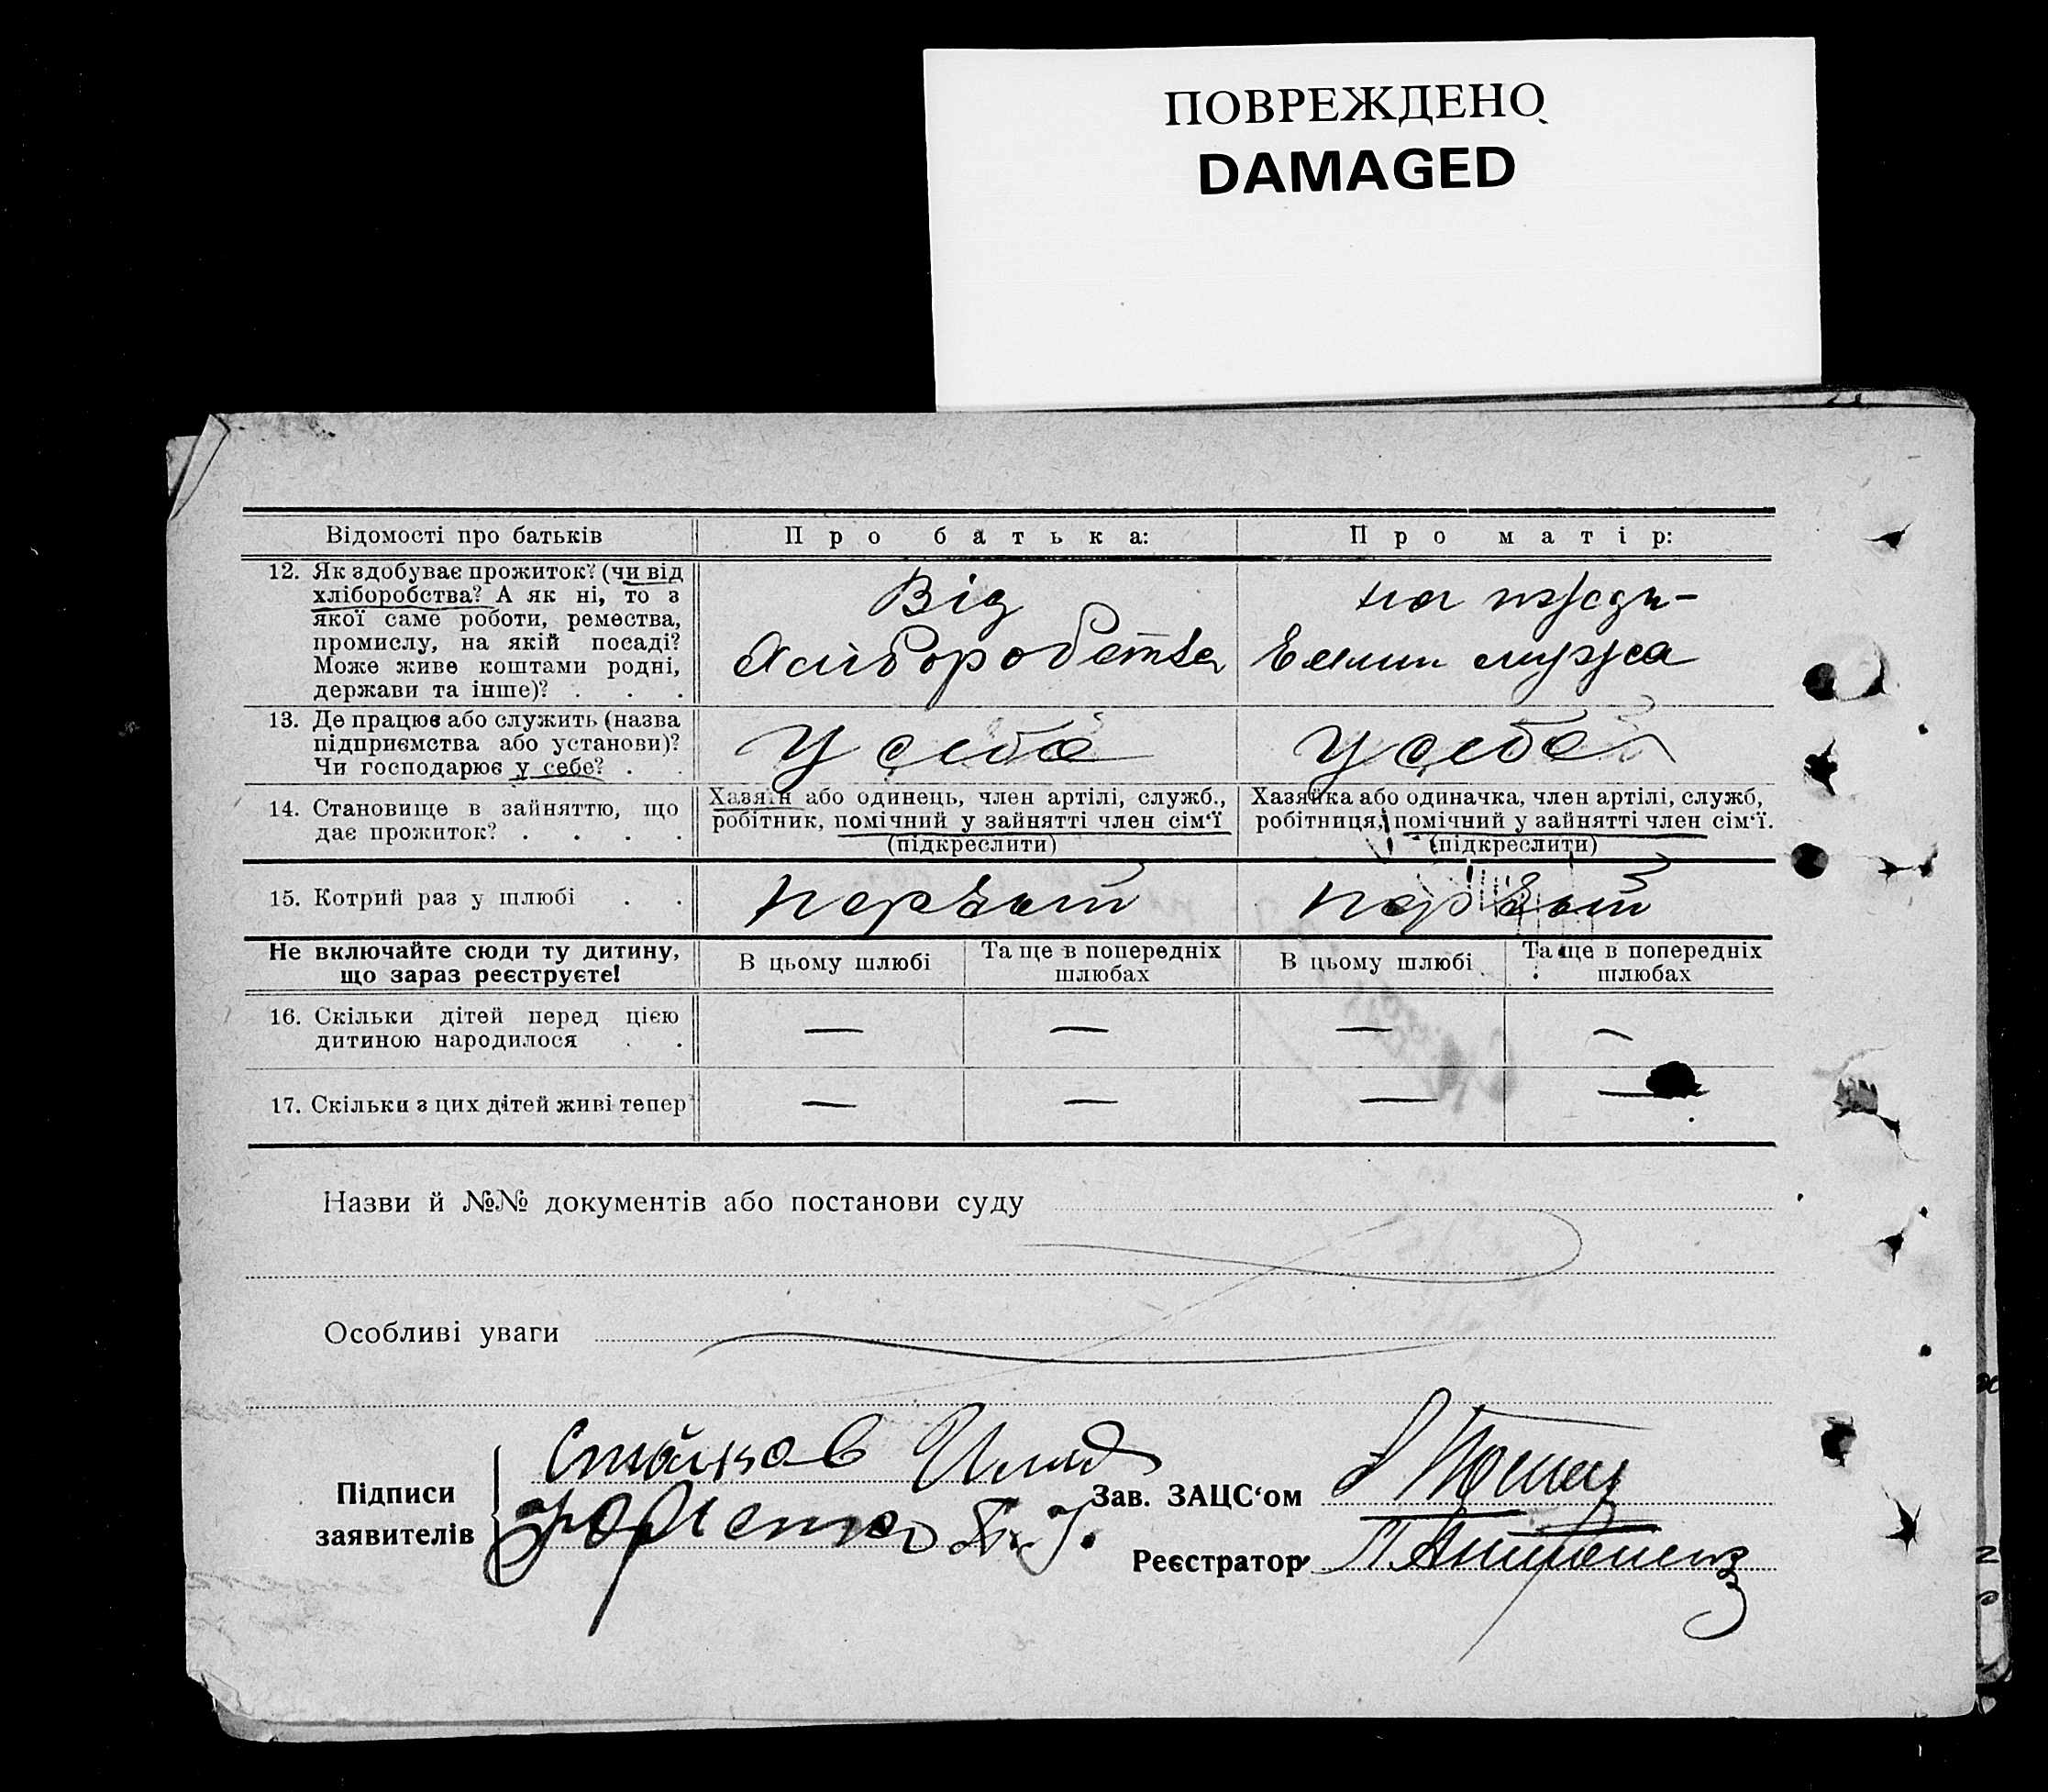 ПОВРЕЖДЕНО
DAMAGED
Відомості про батьків
Про батька:
Про матір:
12. Як здобуває прожиток? (чи від
хліборобства? А як ні, то з
якої саме роботи, ремества,
промислу, на якій посаді?
Може живе коштами родні,
держави та інше)? . . .
Від
Хліборобства
на
мужа
13. Де працює або служить (назва
підприємства або установи)?
Чи господарює у себе? . .
У себе
у себе
14. Становище в зайняттю, що
дає прожиток? . . . .
Хазяїн або одинець, член артілі, служб.,
робітник, помічний у зайнятті член сім'ї
(підкреслити)
Хазяйка або одиначка, член артілі, служб,
робітниця, помічний у зайнятті член сім'ї.
(підкреслити)
15. Котрий раз у шлюбі . .
первый
первый
Не включайте сюди ту дитину,
що зараз реєструєте!
В цьому шлюбі
Та ще в попередніх
шлюбах
В цьому шлюбі
Та ще в попередніх
шлюбах
16. Скільки дітей перед цією
дитиною народилося . .
— — — —
17. Скільки з цих дітей живі тепер
— — — —
Назви й №№ документів або постанови суду
Особливі уваги
Підписи
заявителів
Стайков
Зав. ЗАЦС'ом
Реєстратор